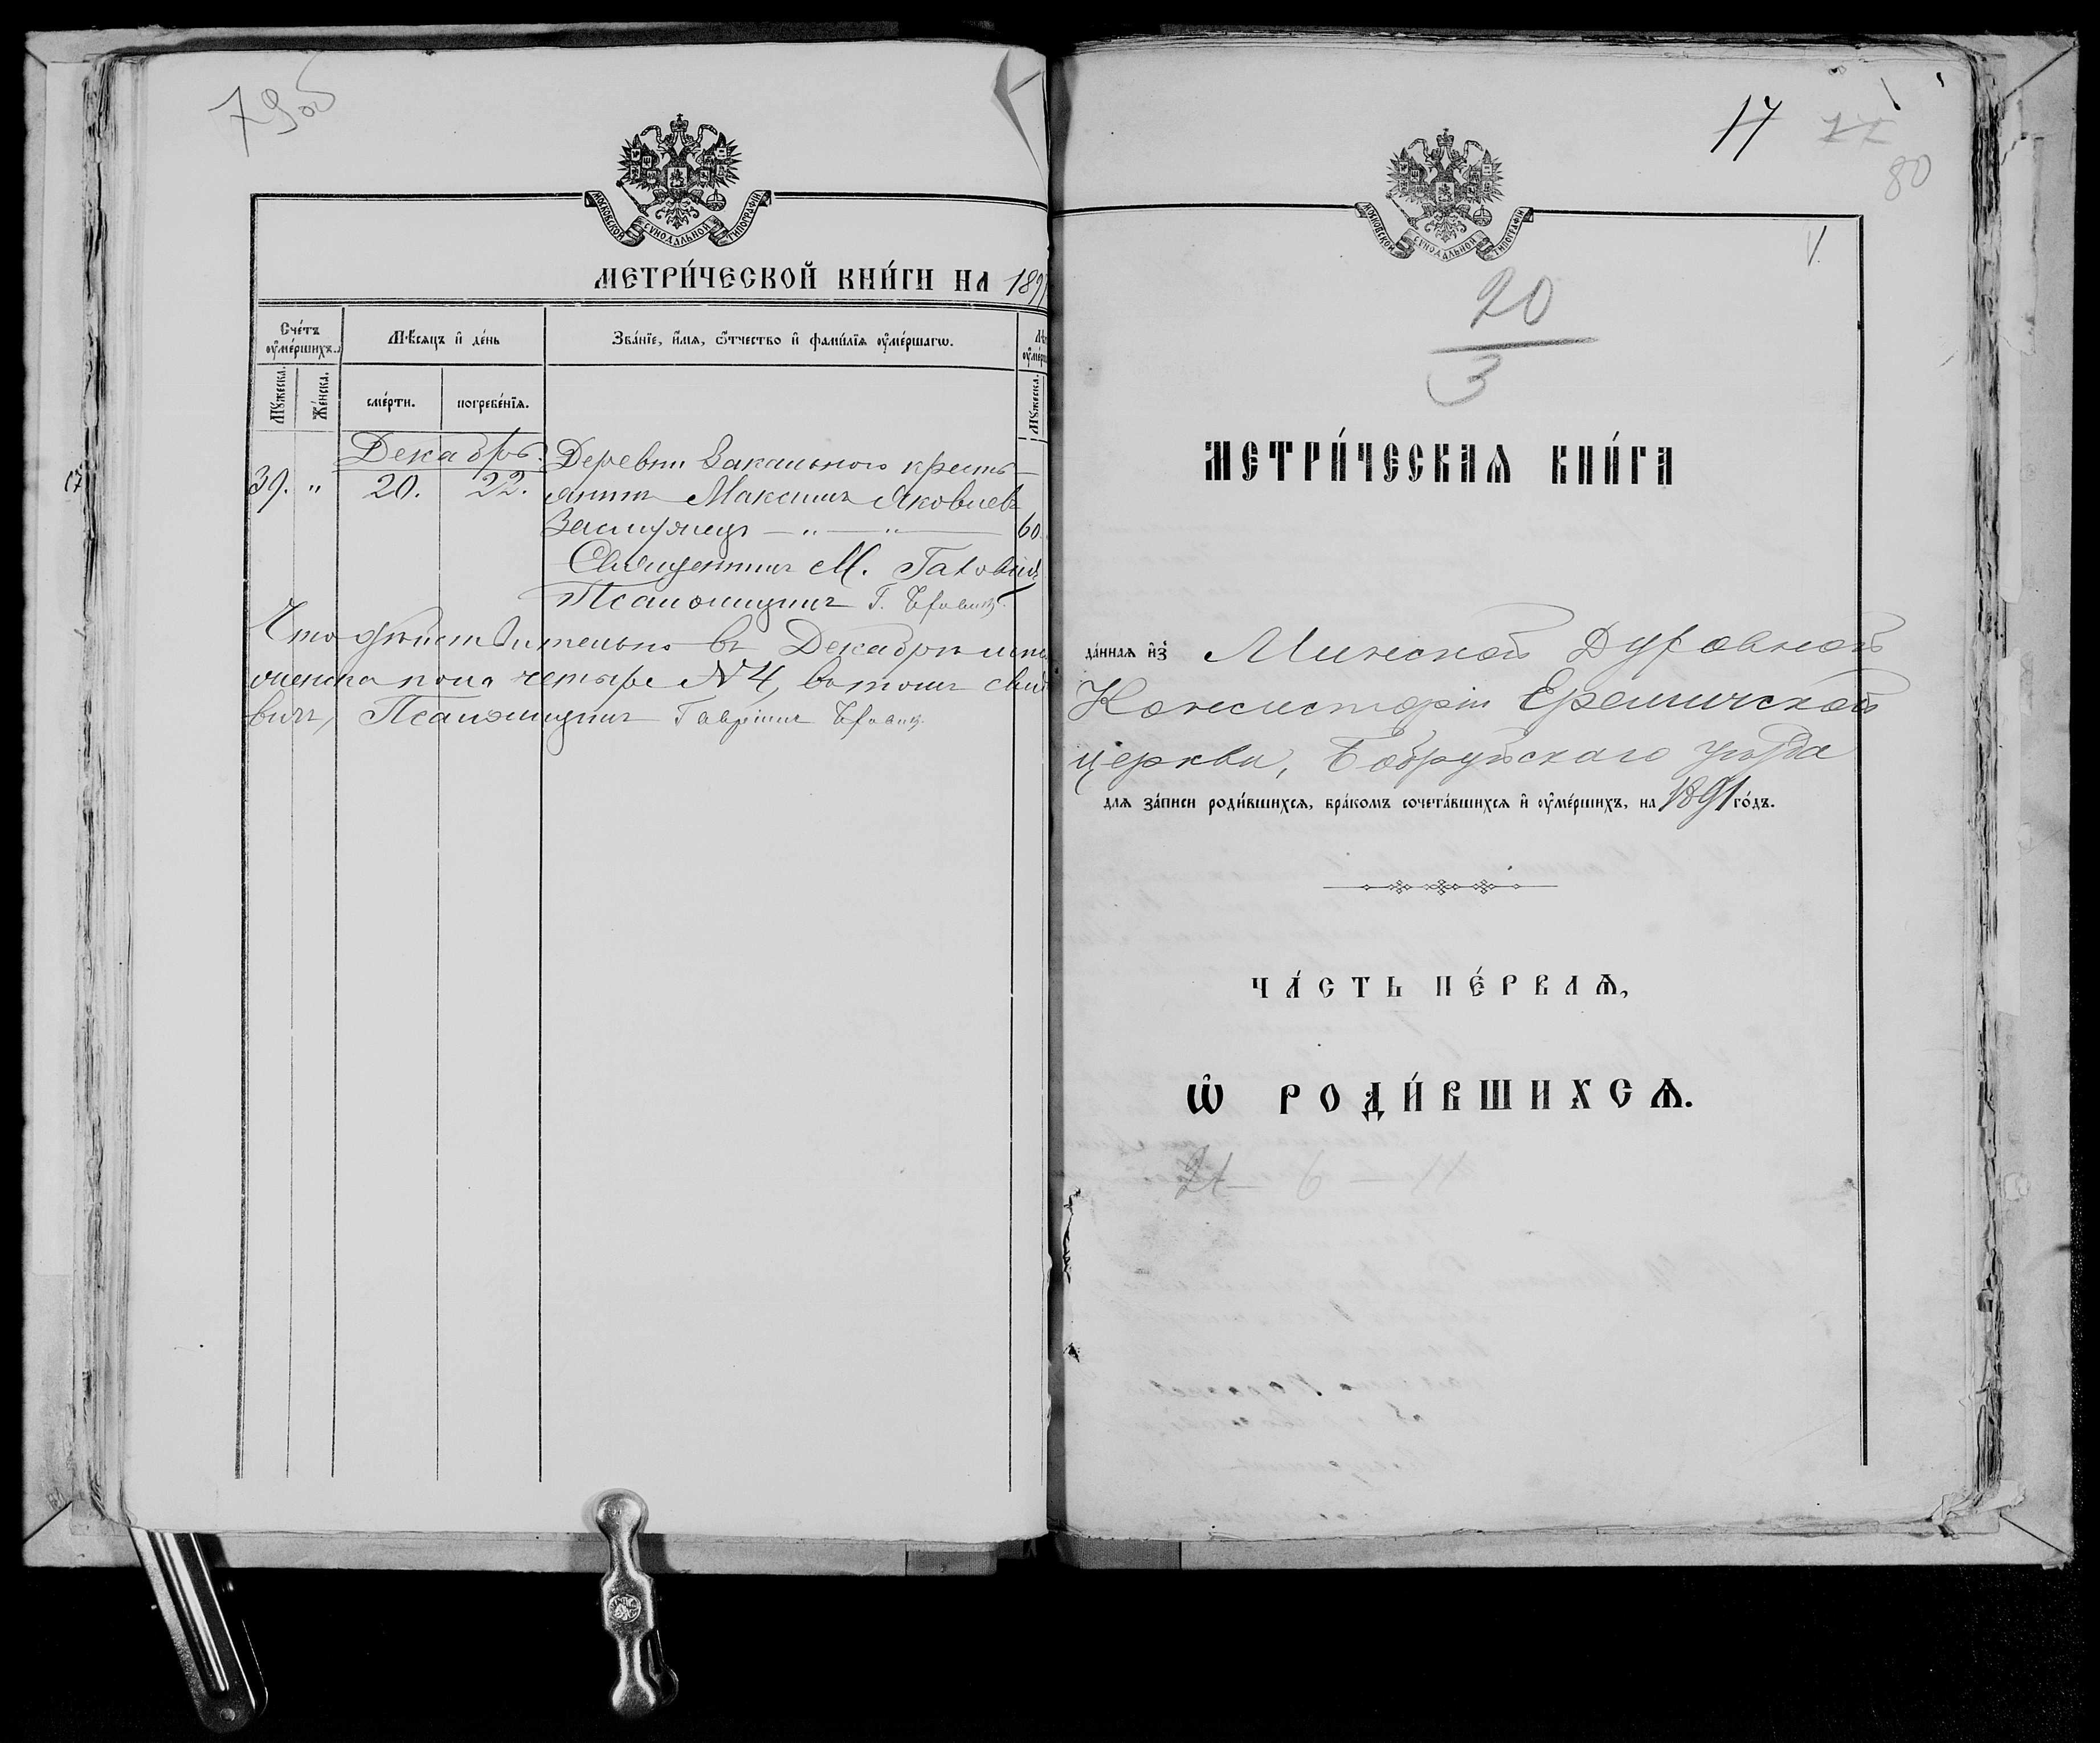 79 об
МОСКОВСКОЙ СѴНОДАЛЬНОЙ ТИПОГРАФІИ
МЕТРИ́ЧЕСКОЙ КНИ́ГИ НА 1891
Сче́тъ ᲂу҆ме́ршихъ.
Мѣ́сяцъ и҆ де́нь
Зва́нїе, и҆́мѧ, ѻ҆́тчество и҆ фами́лїѧ ᲂу҆ме́ршагѡ.
Мꙋ́жеска.
Же́нска.
сме́рти.
погребе́нїѧ.
Мꙋ́жеска.
Декабрь.
Деревни Закального кресть-
39. " 20. 22.
янинъ Максимъ Яковлевъ
— " — " — 60.
Священникъ М.
Псаломщикъ Г.
Что действительно въ Декабрѣ
четыре №4, въ томъ
вичъ, Псаломщикъ Гавріилъ
17
80
1
МОСКОВСКОЙ СѴНОДАЛЬНОЙ ТИПОГРАФІИ
20
3
МЕТРИ́ЧЕСКАѦ КНИ́ГА
да́ннаѧ и҆зъ Минской Духовной
Консисторіи Еремичской
церкви, Бобруйскаго уѣзда
длѧ за́писи роди́вшихсѧ, бра́комъ сочета́вшихсѧ и҆ ᲂу҆ме́ршихъ, на 1891 го́дъ.
ЧА́СТЬ ПЕ́РВАѦ,
Ѡ҆ РОДИ́ВШИХСѦ.